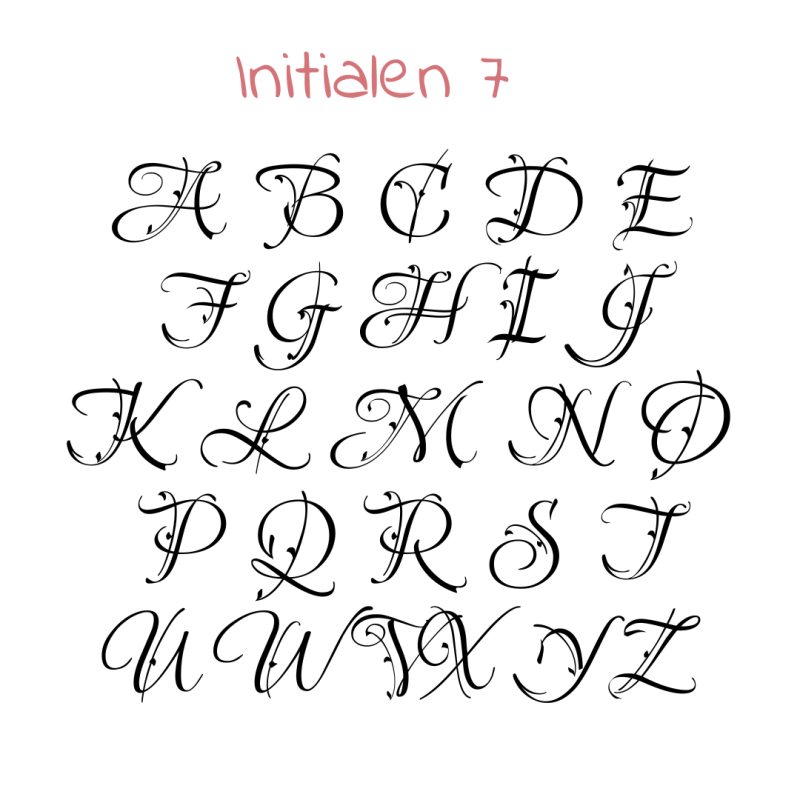 Initialen 7
A B C D E
F G H I J
K L M N O
P Q R S T
U W V X Y Z